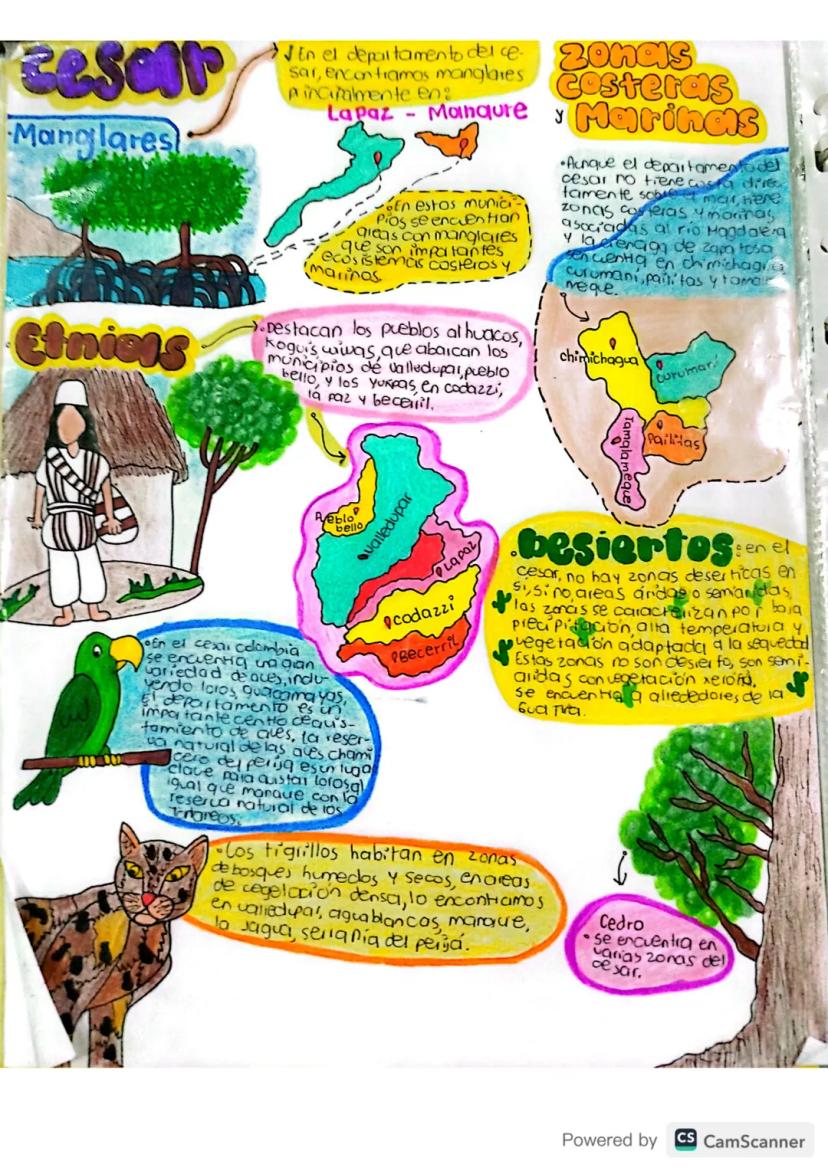 Cesar
√En el departamento del ce-
sar, encontramos manglares
principalmente en:
La paz - Manaure
Manglares
•En estos munici-
pios se encuentran
áreas con manglares
que son importantes
ecosistemas costeros y
marinos.
zonas
costeras
y Marinas
•Aunque el departamento del
cesar no tiene costa direc-
tamente sobre el mar, tiene
zonas costeras y marinas
asociadas al río Magdalena
y la cienaga de zapatosa
se encuentra en chimichagua
curumani, pailitas y tamala-
meque.
chimichagua
curumani
Pailitas
Tamalameque
Etnias
•Destacan los pueblos alhuacos,
koguis, wiwas, que abarcan los
municipios de valledupar, pueblo
bello, y los yukpas, en codazzi,
la paz y becerril.
Pueblo
bello
valledupar
La paz
codazzi
Becerril
•Desiertos: en el
cesar, no hay zonas deserticas en
si, si no, areas áridas o semiaridas,
las zonas se caracterizan por baja
precipitación, alta temperatura y
vegetación adaptada a la sequedad
Estas zonas no son desierto, son semi-
aridas con vegetación xerofita,
se encuentra a alrededores de la
Guajira.
•En el cesar colombia
se encuentra una gran
variedad de aves, inclu-
yendo loros, guacamayas,
El departamento es un
importante centro de avis-
tamiento de aves, la reser-
va natural de las aves chami
cero del perija es un lugar
clave para avistar loros al
igual que manaure con la
reserva natural de los
Tinareos.
•Los tigrillos habitan en zonas
de bosques humedos y secos, en areas
de vegetación densa, lo encontramos
en valledupar, aguablancas, manaure,
la Jagua, serranía del perijá.
Cedro
•se encuentra en
varias zonas del
cesar.
Powered by CS CamScanner